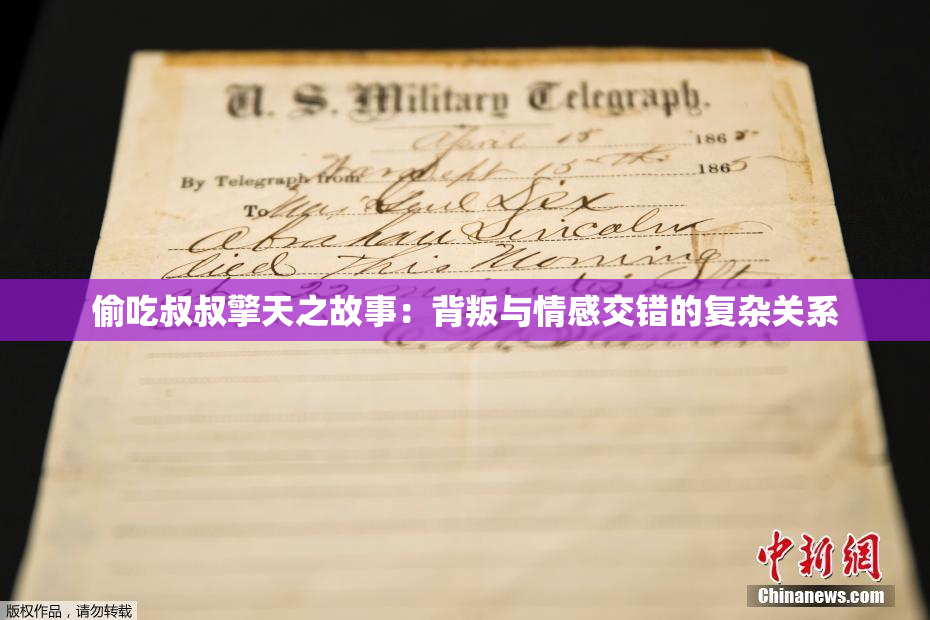 U. S. Military Telegraph.
April 15 1865
By Telegraph from War Dept 15th 1865
To Maj Genl Dix
Abraham Lincoln
died This Morning
at 22 minutes after
偷吃叔叔擎天之故事：背叛与情感交错的复杂关系
E. M. Stanton
中新网
Chinanews.com
版权作品，请勿转载